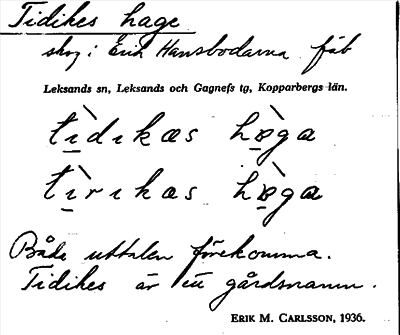 Tidikes hage
skog i Erik Hansbodarna fäb
Leksands sn, Leksands och Gagnefs tg, Kopparbergs län.
tı̀dıkæs hɒ̀ga
tı̀rıkæs hɒ̀ga
Både uttalen förekomma.
Tidikes är ett gårdsnamn.
ERIK M. CARLSSON, 1936.